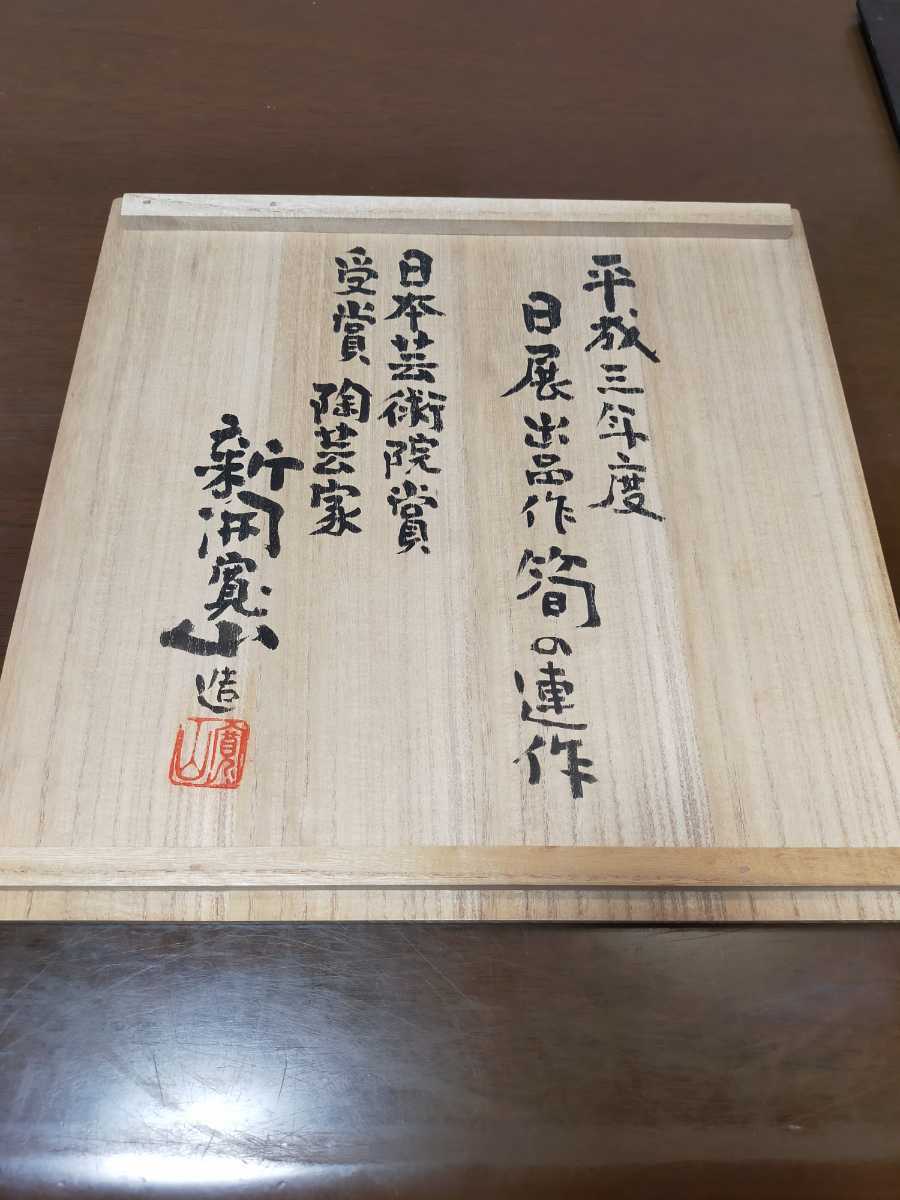 平成三年度
日展出品作 筍の連作
日本芸術院賞
受賞 陶芸家
新開寛山造
寛山